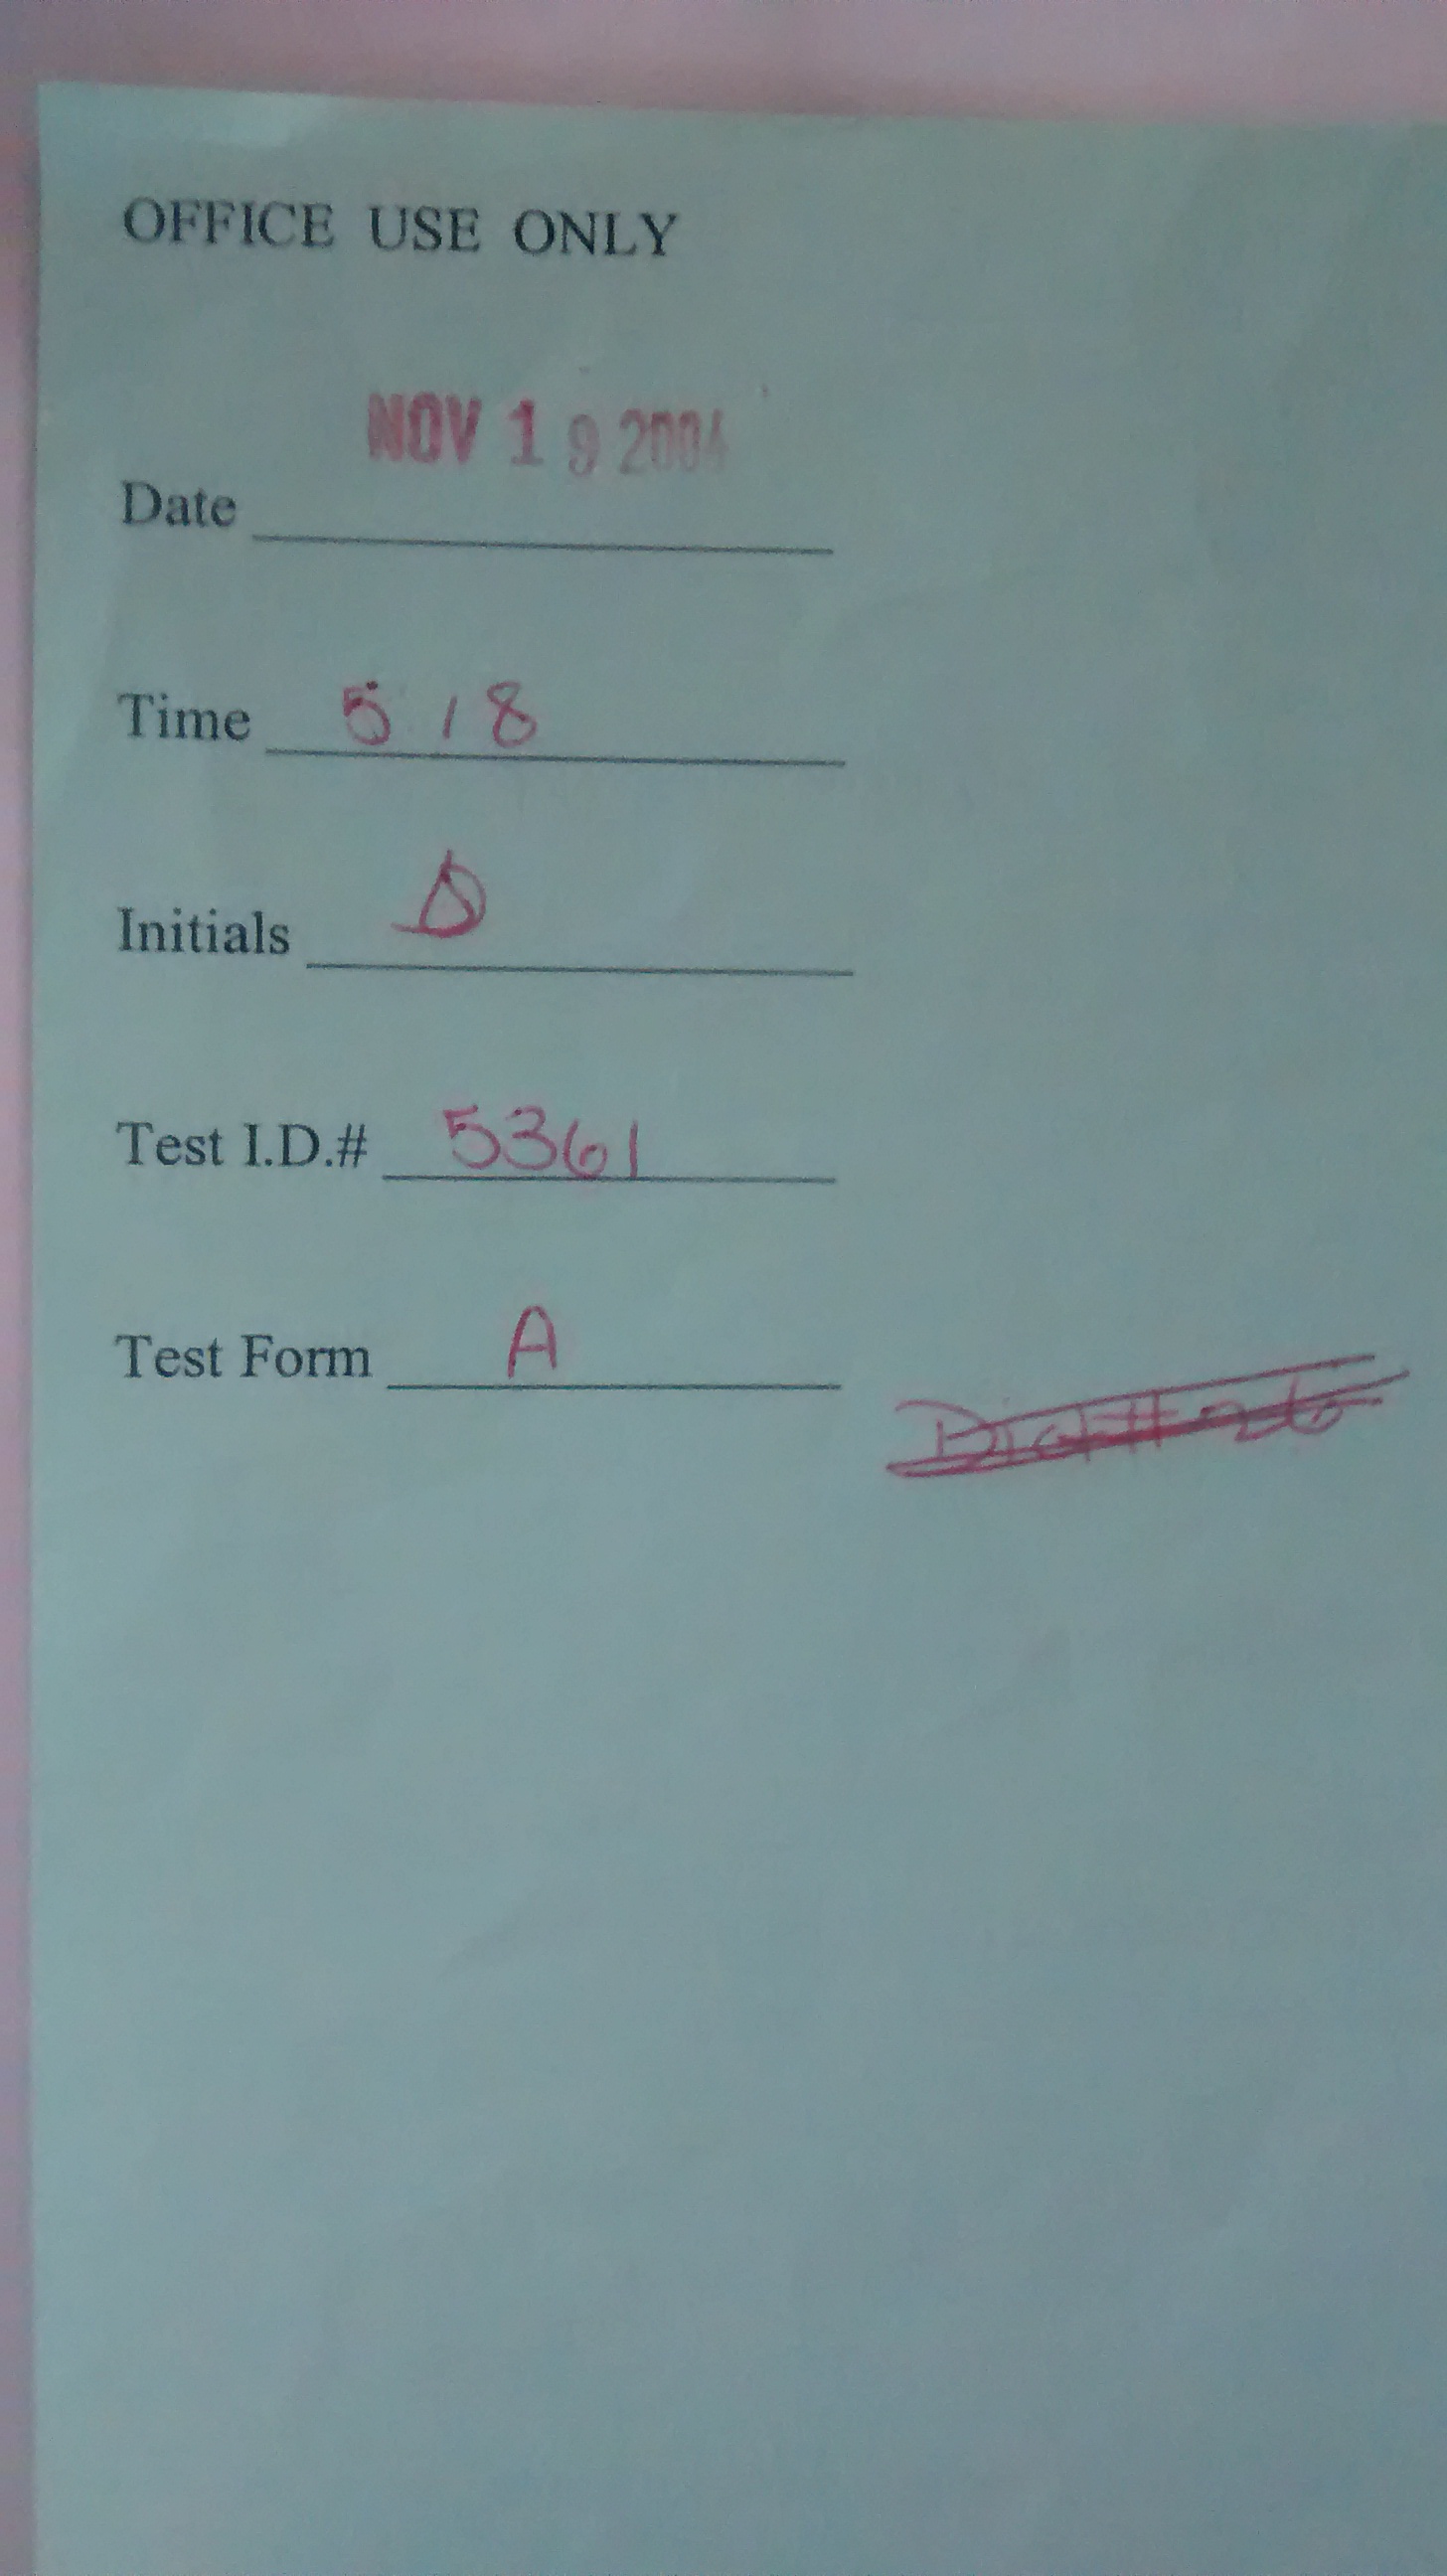 OFFICE USE ONLY
NOV 19 2004
Date
Time 5 18
Initials
Test I.D.# 5361
Test Form A